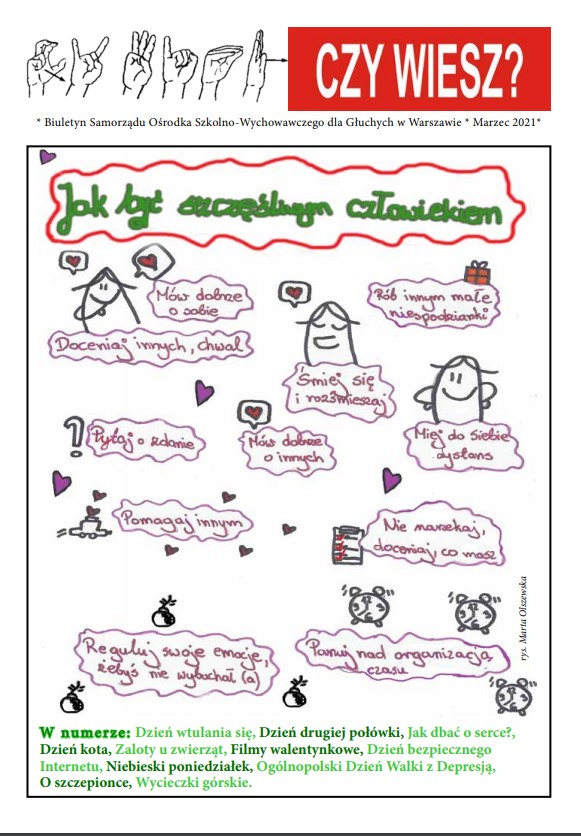 CZY WIESZ?
* Biuletyn Samorządu Ośrodka Szkolno-Wychowawczego dla Głuchych w Warszawie * Marzec 2021*
Jak być szczęśliwym człowiekiem
Mów dobrze
o sobie
Doceniaj innych, chwal
Rób innym małe
niespodzianki
Śmiej się
i rozśmieszaj
Pytaj o zdanie
Mów dobrze
o innych
Miej do siebie
dystans
Pomagaj innym
Nie narzekaj,
doceniaj, co masz
Reguluj swoje emocje,
żebyś nie wybuchał (a)
Panuj nad organizacją
czasu
rys. Marta Olszewska
W numerze: Dzień wtulania się, Dzień drugiej połówki, Jak dbać o serce?,
Dzień kota, Zaloty u zwierząt, Filmy walentynkowe, Dzień bezpiecznego
Internetu, Niebieski poniedziałek, Ogólnopolski Dzień Walki z Depresją,
O szczepionce, Wycieczki górskie.